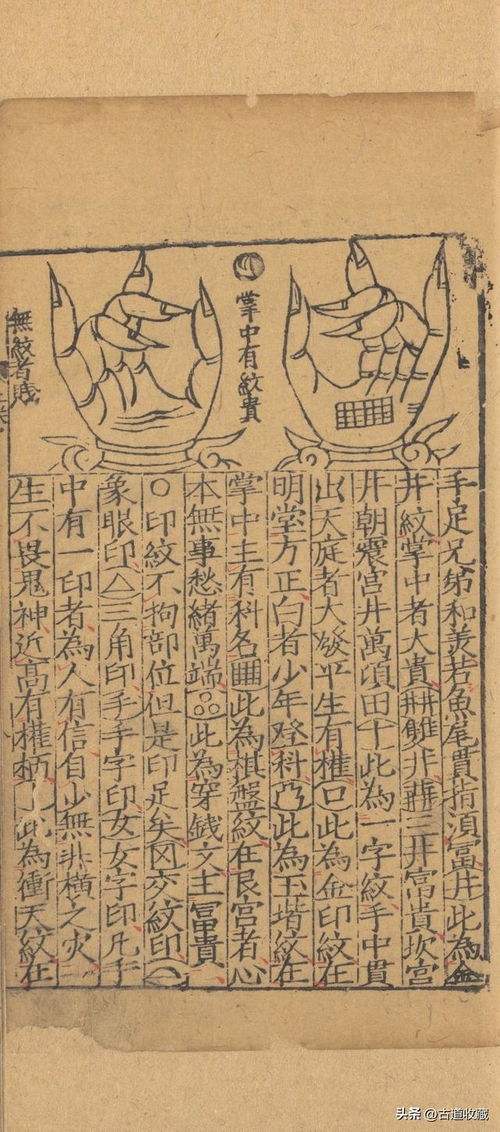 掌中有紋貴
無紋者賤
手足兄弟和美若魚尾貫指須富井此為金
井紋掌中者大貴 雙井 三井富貴坎宮
井朝震宮井萬頃田十此為一字紋手中貫
出天庭者大發平生有權口此為金印紋在
明堂方正白者少年登科 此為玉堦紋在
掌中主有科名 此為棋盤紋在艮宮者心
本無事愁緒萬端 此為穿錢文主冨貴
〇印紋不拘部位但是印足矣 交紋印
象眼印△三角印手手字印女女字印凡手
中有一印者為人有信自少無非橫之災
生不畏鬼神近高有權柄 此為衝天紋在
头条@古道收藏